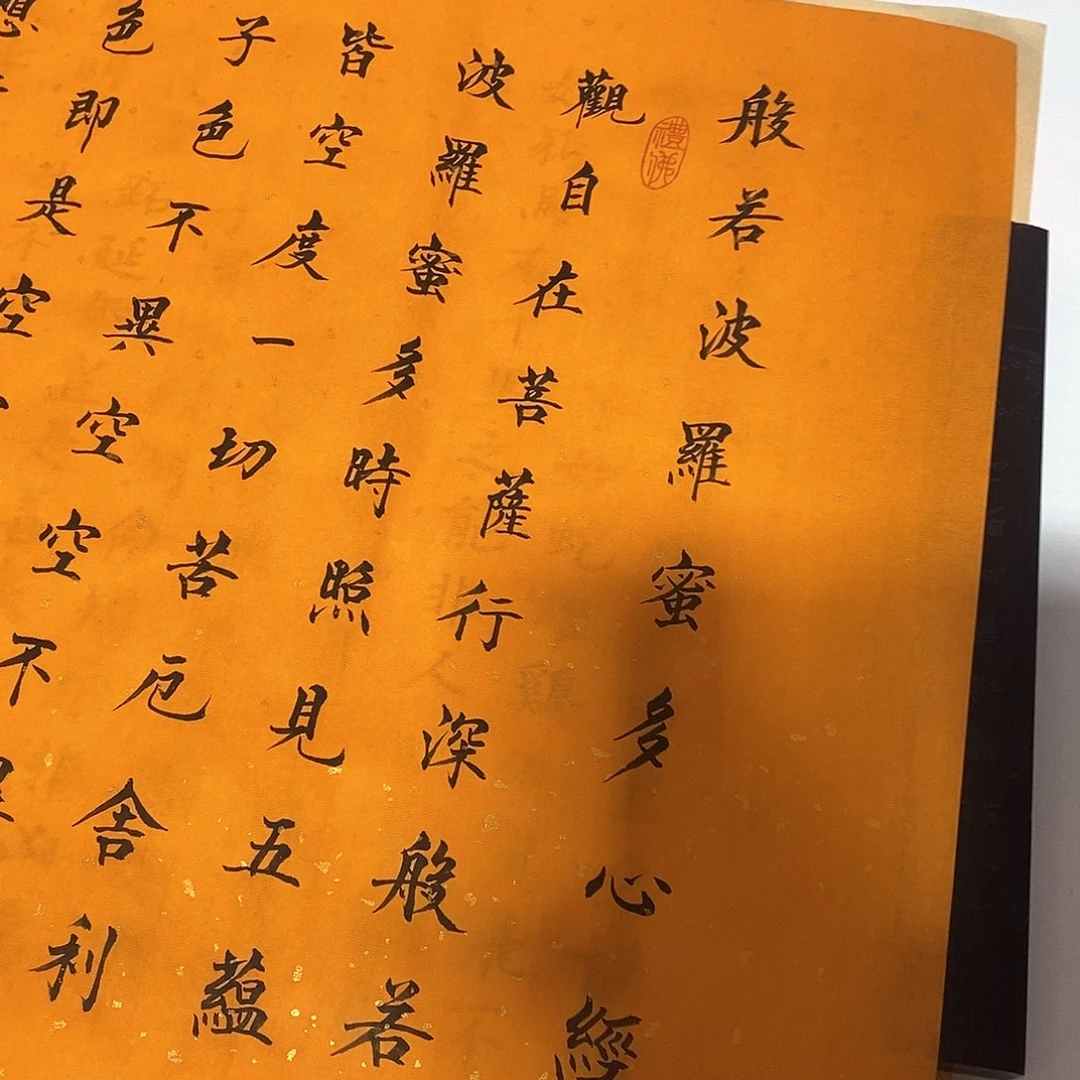 般若波羅蜜多心經
禮佛
觀自在菩薩行深般若
波羅蜜多時照見五蘊
皆空度一切苦厄舍利
子色不異空空不
色即是空
想